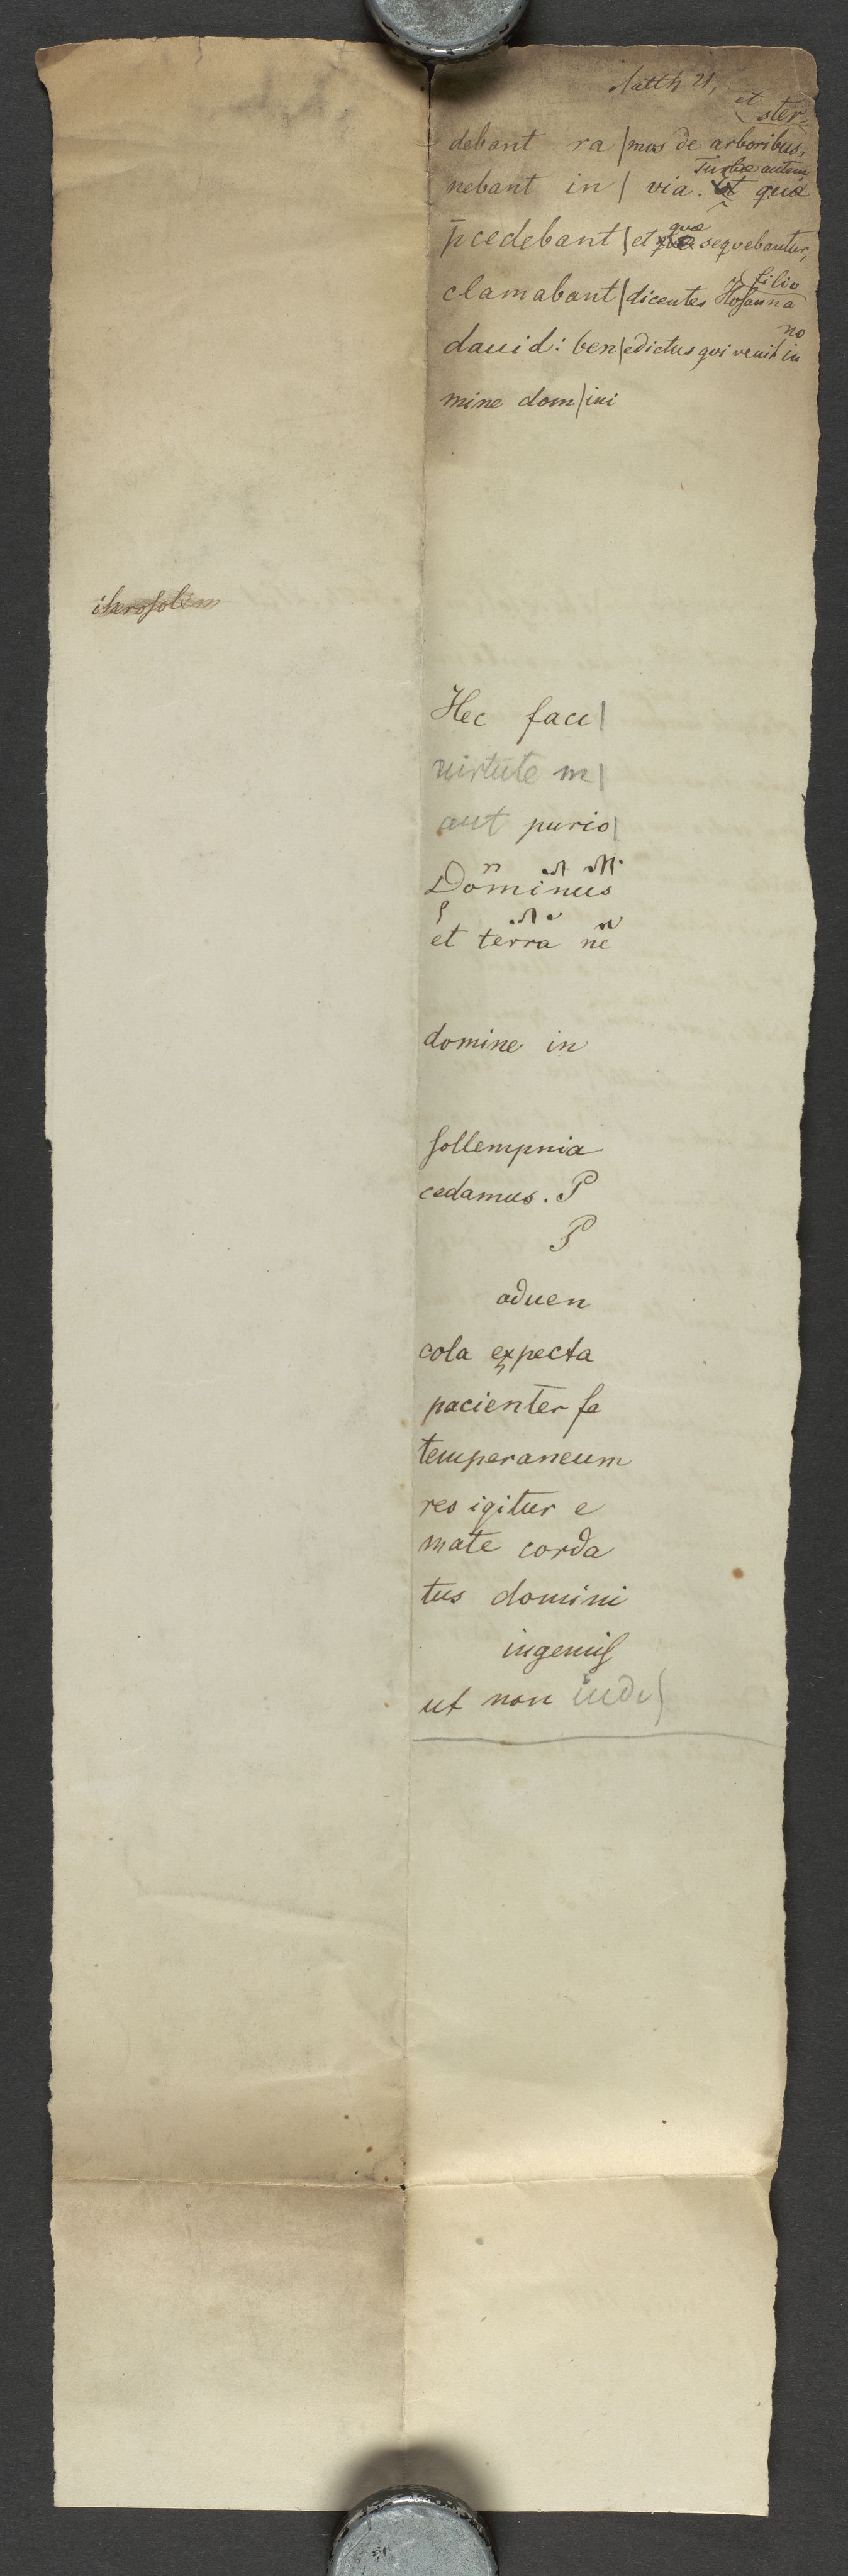 Matth 21,
et
ster=
debant ra | mos de arboribus,
Turbæ autem
nebant in | via. et quæ
p̄cedebant | et quæ quæ sequebantur,
filio
clamabant | dicentes Hosanna
no
dauid: ben | edictus qui venit in
mine dom | ini
iherosolim
Hec faci |
uirtute m |
aut purio |
Dominus
et terra ne
domine in
sollempnia
cedamus. P
P
aduen
cola expecta
pacienter fe
temperaneum
res igitur e
mate corda
tus domini
ingemis
ut non iudi |